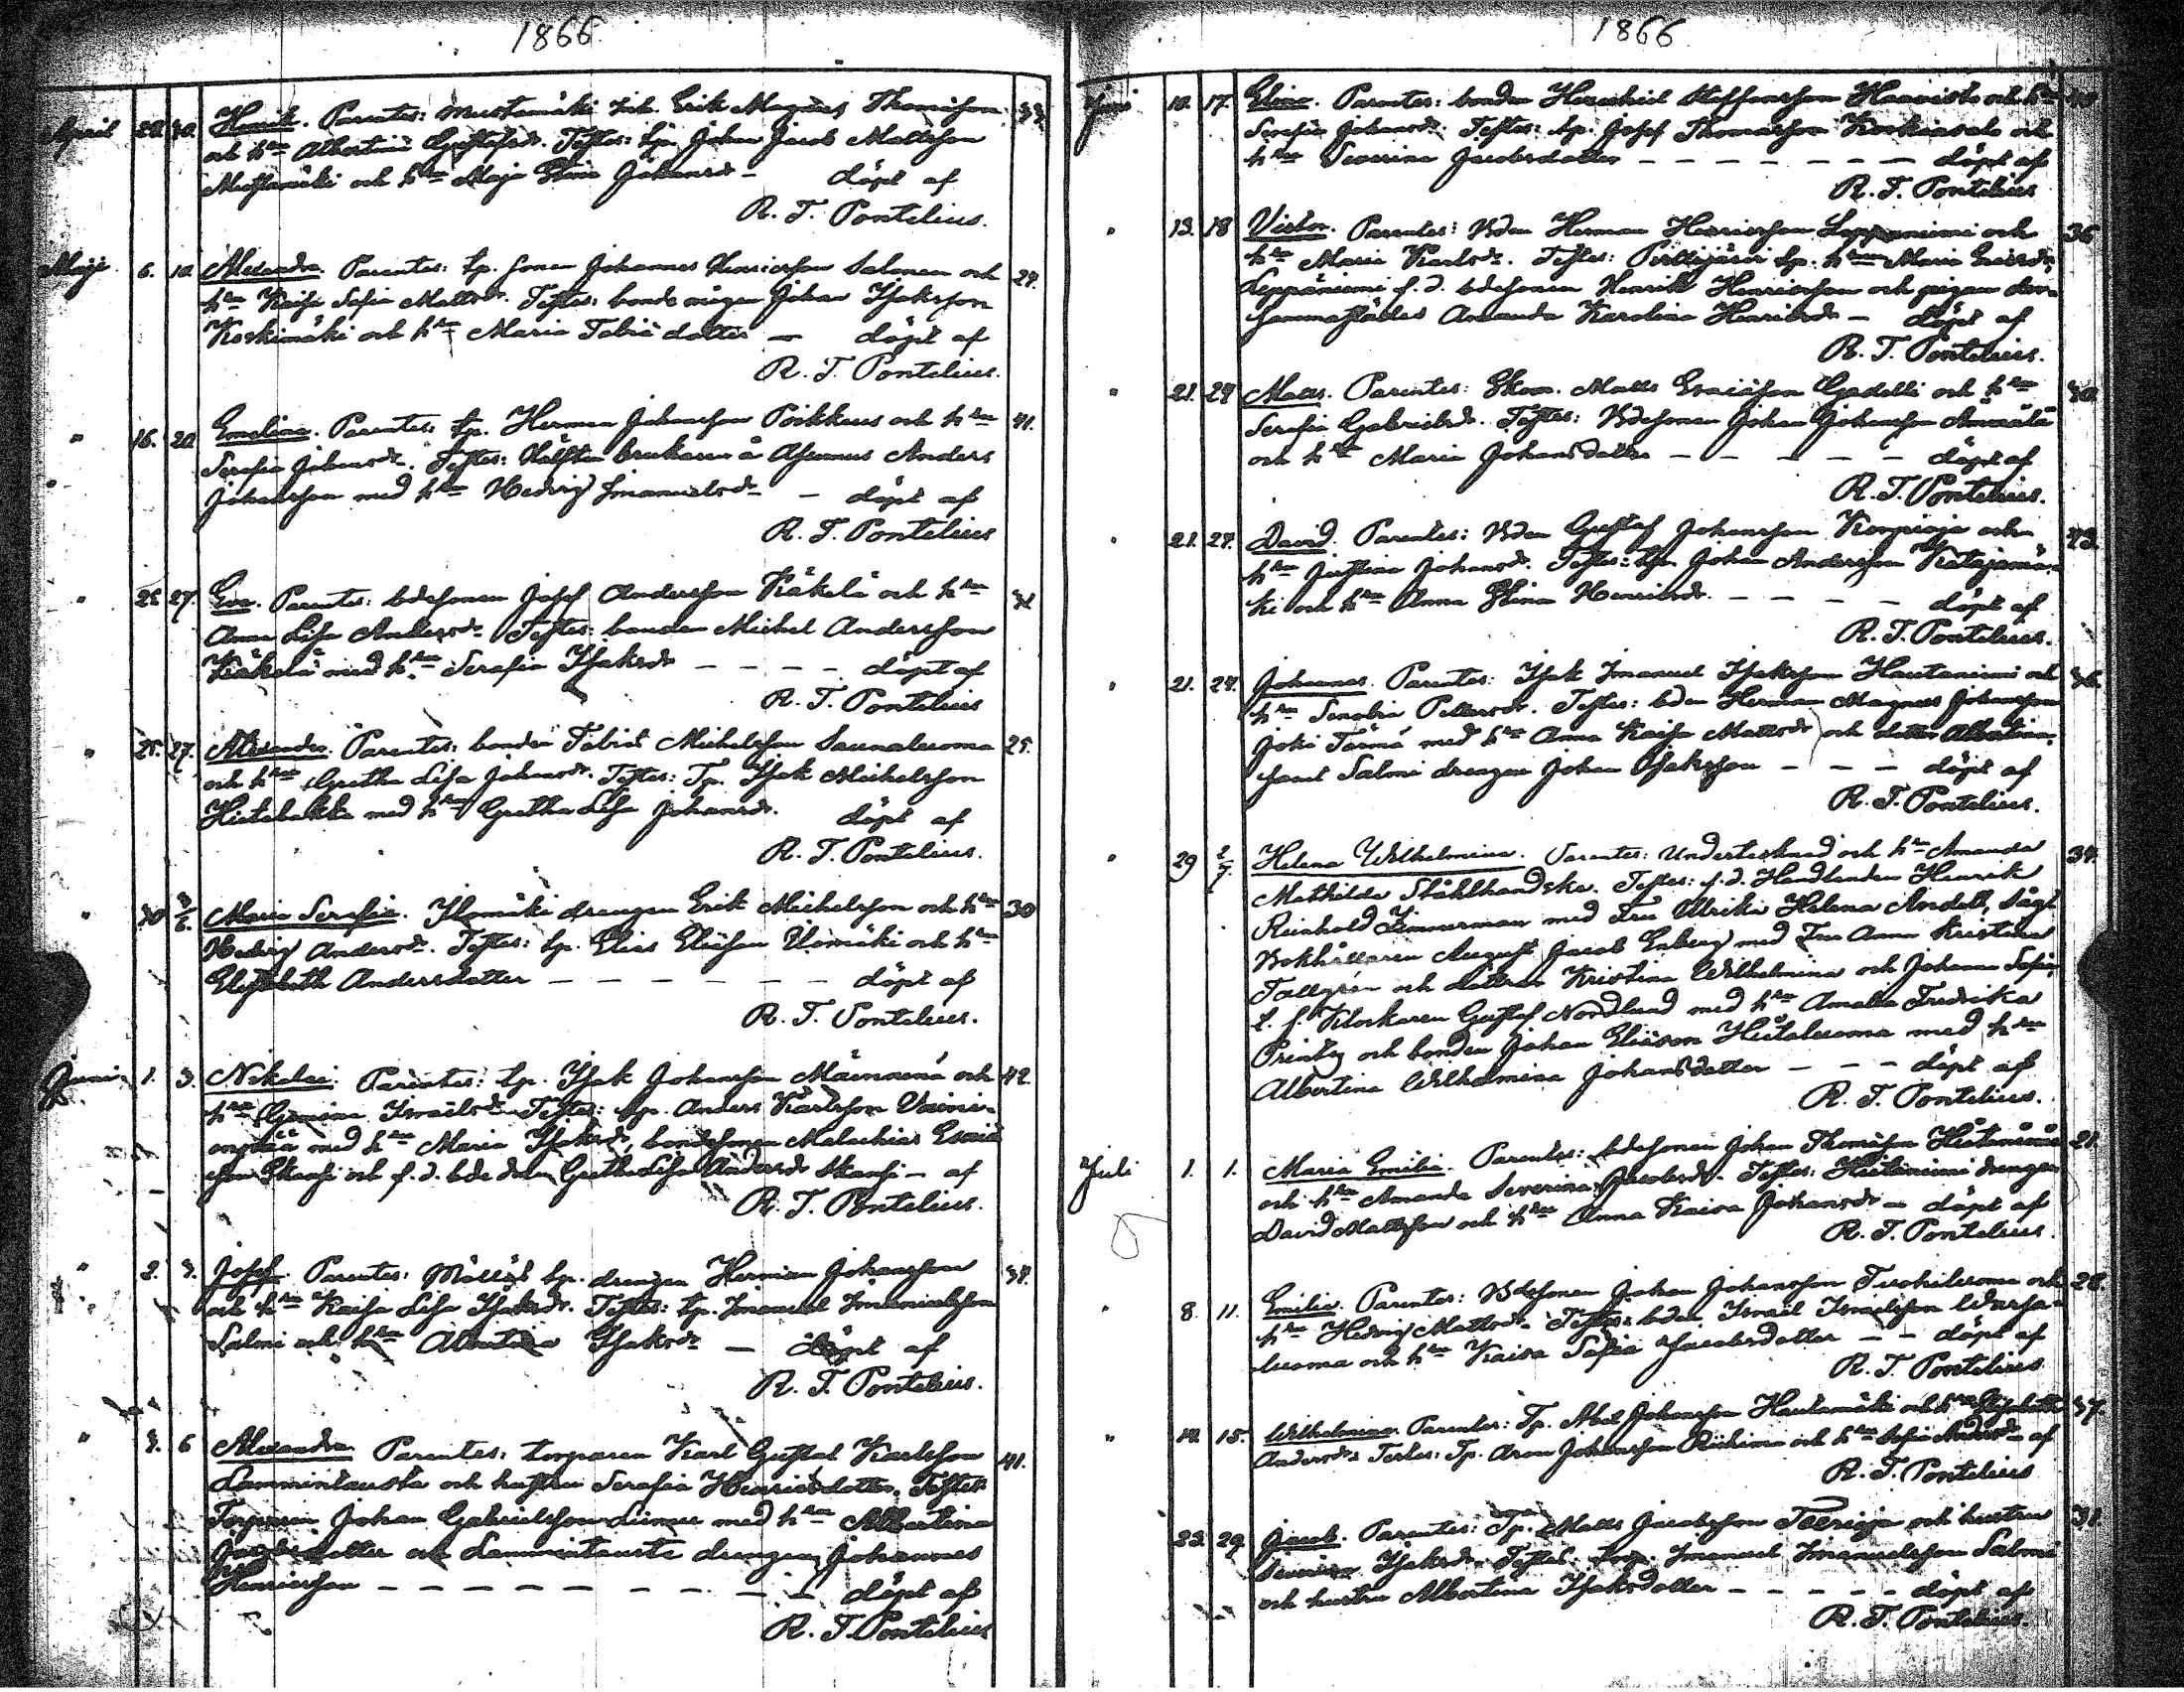 1866
April 29. 30. Henrik. Parentes: Mustamäki Inh. Erik Magnus Thomasson 33.
och hru Albertina Gustafsdr. Testes: tp. Johan Jacob Mattsson
Mustamäki och hru Maja Stina Johansdr - döpt af
R. T. Pontelius.
Maji 6. 10. Alexandra. Parentes: tp. sonen Johannes Henricsson Salonen och 24.
hru Kaisa Sofia Mattsdr. Testes: bonde mågen Johan Isaksson
Koskimäki och hru Maria Tobiædotter — döpt af
R. T. Pontelius.
" 16. 20. Emelina. Parentes: tp. Herman Johansson Poikkeus och hru 41.
Serafia Johansdr. Testes: Hälften brukaren å Asunmus Anders
Johansson med hru Hedvig Imanuelsdr — döpt af
R. T. Pontelius
" 25. 27. Eva. Parentes: bdesonen Josef Andersson Käkelä och hru
Anna Lisa Andersdr. Testes: bonden Michel Andersson
Käkelä med hru Serafia Isaksdr - - - - döpt af
R. T. Pontelius
" 25. 27. Alexander. Parentes: bonden Tobias Michelsson Saunaluoma 25.
och hru Gretha Lisa Johansdr. Testes: Tp. Isak Michelsson
Hietalahti med hru Gretha Lisa Johansdr. döpt af
R. T. Pontelius.
" 30 3/6. Maria Serafia. Ylomäki drengen Erik Michelsson och hru 30
Hedvig Andersdr. Testes: tp. Elias Eliæson Ylomäki och hru
Elisabeth Andersdotter - - - - - - döpt af
R. T. Pontelius.
Juni 1. 3. Nikolai. Parentes: tp. Isak Johansson Männenä och 42.
hru Gemina Israelsdr. Testes: tp. Anders Karlsson Vaini-
onpää med hru Maria Isaksdr, bondesonen Malachias Esaiæ
son Skansi och f. d. bde dotn Gretha Lisa Andersdr Skansi — af
R. T. Pontelius.
" 2. 3. Josef. Parentes: Möllös tp. drengen Herman Johansson 34.
och hru Kaisa Lisa Isaksdr. Testes: tp. Imanuel Imanuelsson
Salmi och hru Albertina Isaksdr — döpt af
R. T. Pontelius.
" 3. 6 Alexandra. Parentes: torparen Karl Gustaf Karlsson 41.
Lammintausta och hustru Serafia Henricsdotter. Testes:
Torparen Johan Gabrielsson Liimu med hru Albertina
dotter och Lammintausta drengen Johannes
Henricsson - - - - - - - - döpt af
R. T. Pontelius
1866
Juni 10. 17. Elina. Parentes: bonden Hezechiel Steffansson Haavisto och hru
Serafia Johansdr. Testes: tp. Josef Thomasson Koskiasalo och
hru Severina Jacobsdotter - - - - - - - döpt af
R. T. Pontelius
" 13. 18 Victor. Parentes: Bden Herman Henricsson Leppäniemi och 36
hru Maria Karlsdr. Testes: Pirttijärvi tp. hrun Maria Ericsdr,
Leppäniemi f. d. bdesonen Henrik Henricsson och pigan der-
sammastädes Amanda Karolina Henricsdr - döpt af
R. T. Pontelius.
" 21. 24 Matts. Parentes: Skom. Matts Esaiæson Gadolli och hru 30.
Serafia Gabrielsdr. Testes: Bdesonen Johan Johansson Ammälä
och hru Maria Johansdotter - - - - - döpt af
R. T. Pontelius.
" 21. 27. David. Parentes: Bden Gustaf Johansson Korpioja och 43.
hru Justina Johansdr. Testes: tp. Johan Andersson Katajamä-
ki och hru Anna Stina Henricsdr. - - - - döpt af
R. T. Pontelius.
" 21. 24. Johannes. Parentes: Isak Imanuel Isaksson Hautaniemi och 36.
hru Senobia Pettersdr. Testes: bden Herman Magnus Johansson
Joki Törmä med hru Anna Kaisa Mattsdr och dotter Albertina,
samt Salmi drengen Johan Isaksson - - - döpt af
R. T. Pontelius.
" 29 2/7 Helena Wilhelmina. Parentes: Undertecknad och hru Amanda 34.
Mathilda Stålhandske. Testes: f. d. Handlanden Henrik
Reinhold Zimmerman med Fru Ulrika Helena Andell, Sågs
Bokhållaren August Jacob Enberg med Fru Anna Kristina
Tallgrén och döttrar Kristina Wilhelmina och Johanna Sofia,
t. f. Klockaren Gustaf Nordlund med hru Amalia Fredrika
Printz och bonden Johan Eliæson Hietaluoma med hru
Albertina Wilhelmina Johansdotter - - - döpt af
R. T. Pontelius.
Juli 1. 1. Maria Emilia. Parentes: bdesonen Johan Thomasson Hietaniemi 21.
och hru Amanda Severina Jacobsdr. Testes: Hietaniemi drengen
David Mattsson och hru Anna Kaisa Johansdr — döpt af
R. T. Pontelius.
" 8. 11. Emilia. Parentes: Bdesonen Johan Johansson Tuohiluoma och 28.
hru Hedvig Mattsdr. Testes: bden Israel Israelsson Warsa-
luoma och hru Kaisa Sofia Jacobsdotter - - döpt af
R. T. Pontelius
" 14. 15. Wilhelmina. Parentes: Tp. Abel Johansson Hautamäki och hru Elisabeth 37.
Andersdr. Testes: Tp. Aron Johansson Riihimä och hru Sofia Andersdr af
R. T. Pontelius
23. 29. Jacob. Parentes: Tp. Matts Jacobsson Teerioja och hustru 31.
Severina Isaksdr. Testes: torp. Imanuel Imanuelsson Salmi
och hustru Albertina Isaksdotter - - - - - döpt af
R. T. Pontelius.